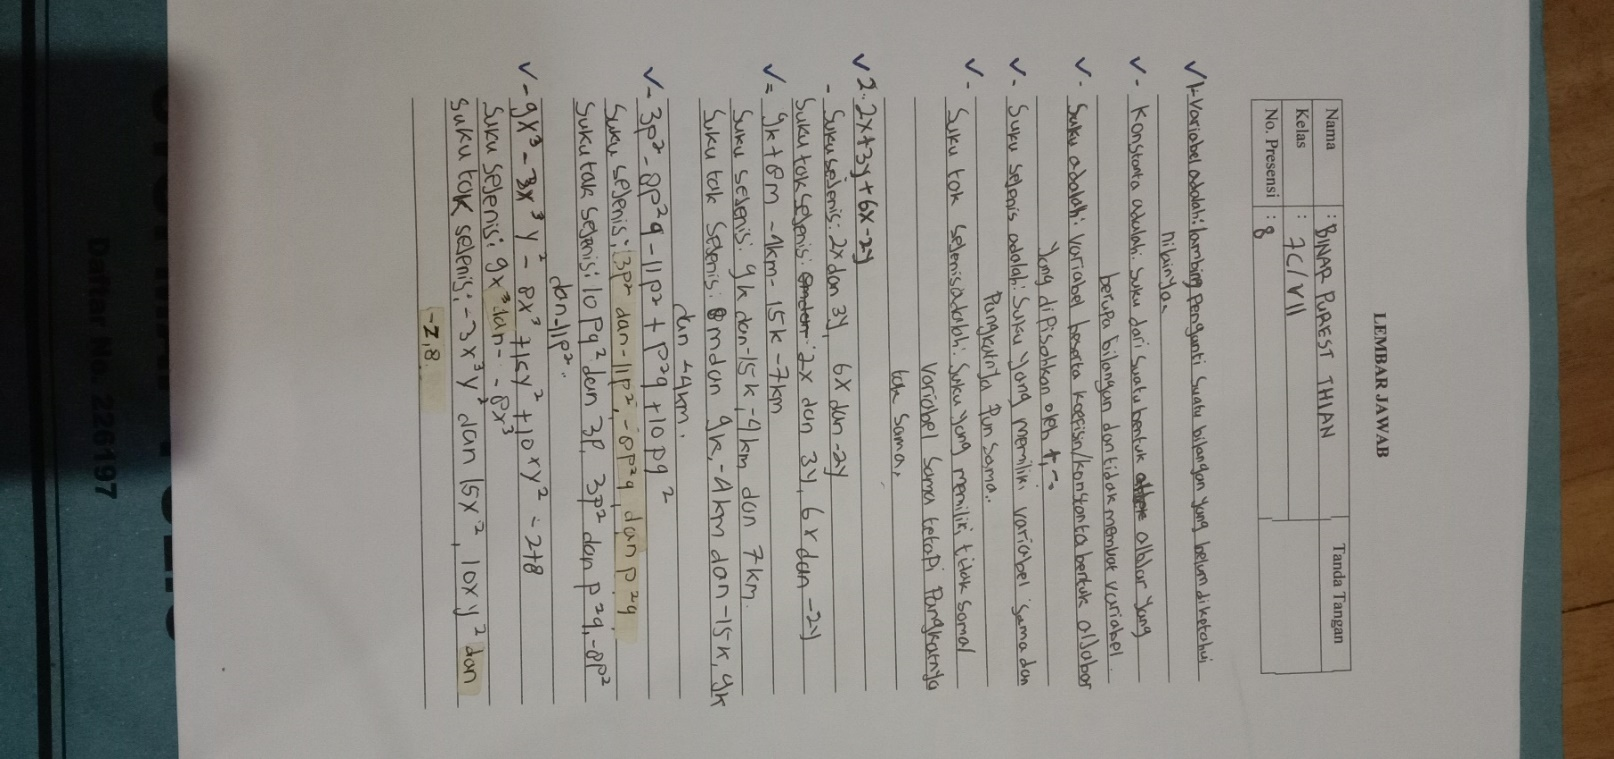 LEMBAR JAWAB
Nama : BINAR PUREST THIAN
Tanda Tangan
Kelas : 7C/VII
No. Presensi : 8
✓ 1. Variabel adalah: lambang pengganti suatu bilangan yang belum diketahui
nilainya.
✓ - Konstanta adalah: suku dari suatu bentuk aljabar yang
berupa bilangan dan tidak memuat variabel.
✓ - Suku adalah: variabel beserta koefisin/konstanta bentuk aljabar
yang dipisahkan oleh +,-.
✓ - Suku sejenis adalah: suku yang memiliki variabel sama dan
Pangkatnya pun sama..
✓ - Suku tak sejenis adalah: suku yang memiliki tidak sama/
variabel sama tetapi pangkatnya
tak sama.
✓ 2. 2x+3y+6x-2y
- Suku sejenis: 2x dan 3y, 6x dan -2y
Suku tak sejenis: 2x dan 3y, 6x dan -2y
✓ = 9k+8m-4km-15k-7km
Suku sejenis: 9k dan -15k, -4km dan 7km.
Suku tak sejenis: 8m dan 9k, -4km dan -15k, 9k
dan -4km.
✓ - 3p²-8p²q-11p²+p²q+10pq²
Suku sejenis: 3p² dan -11p², -8p²q dan p²q
Suku tak sejenis: 10pq² dan 3p, 3p² dan p²q, -8p²
dan -11p²..
✓ - 9x³-3x³y²-8x³+15y²+10xy²-2+8
Suku sejenis: 9x³ dan - 8x³
Suku tak sejenis: -3x³y² dan 15x², 10xy² dan
-2,8.
Daftar No. 226197